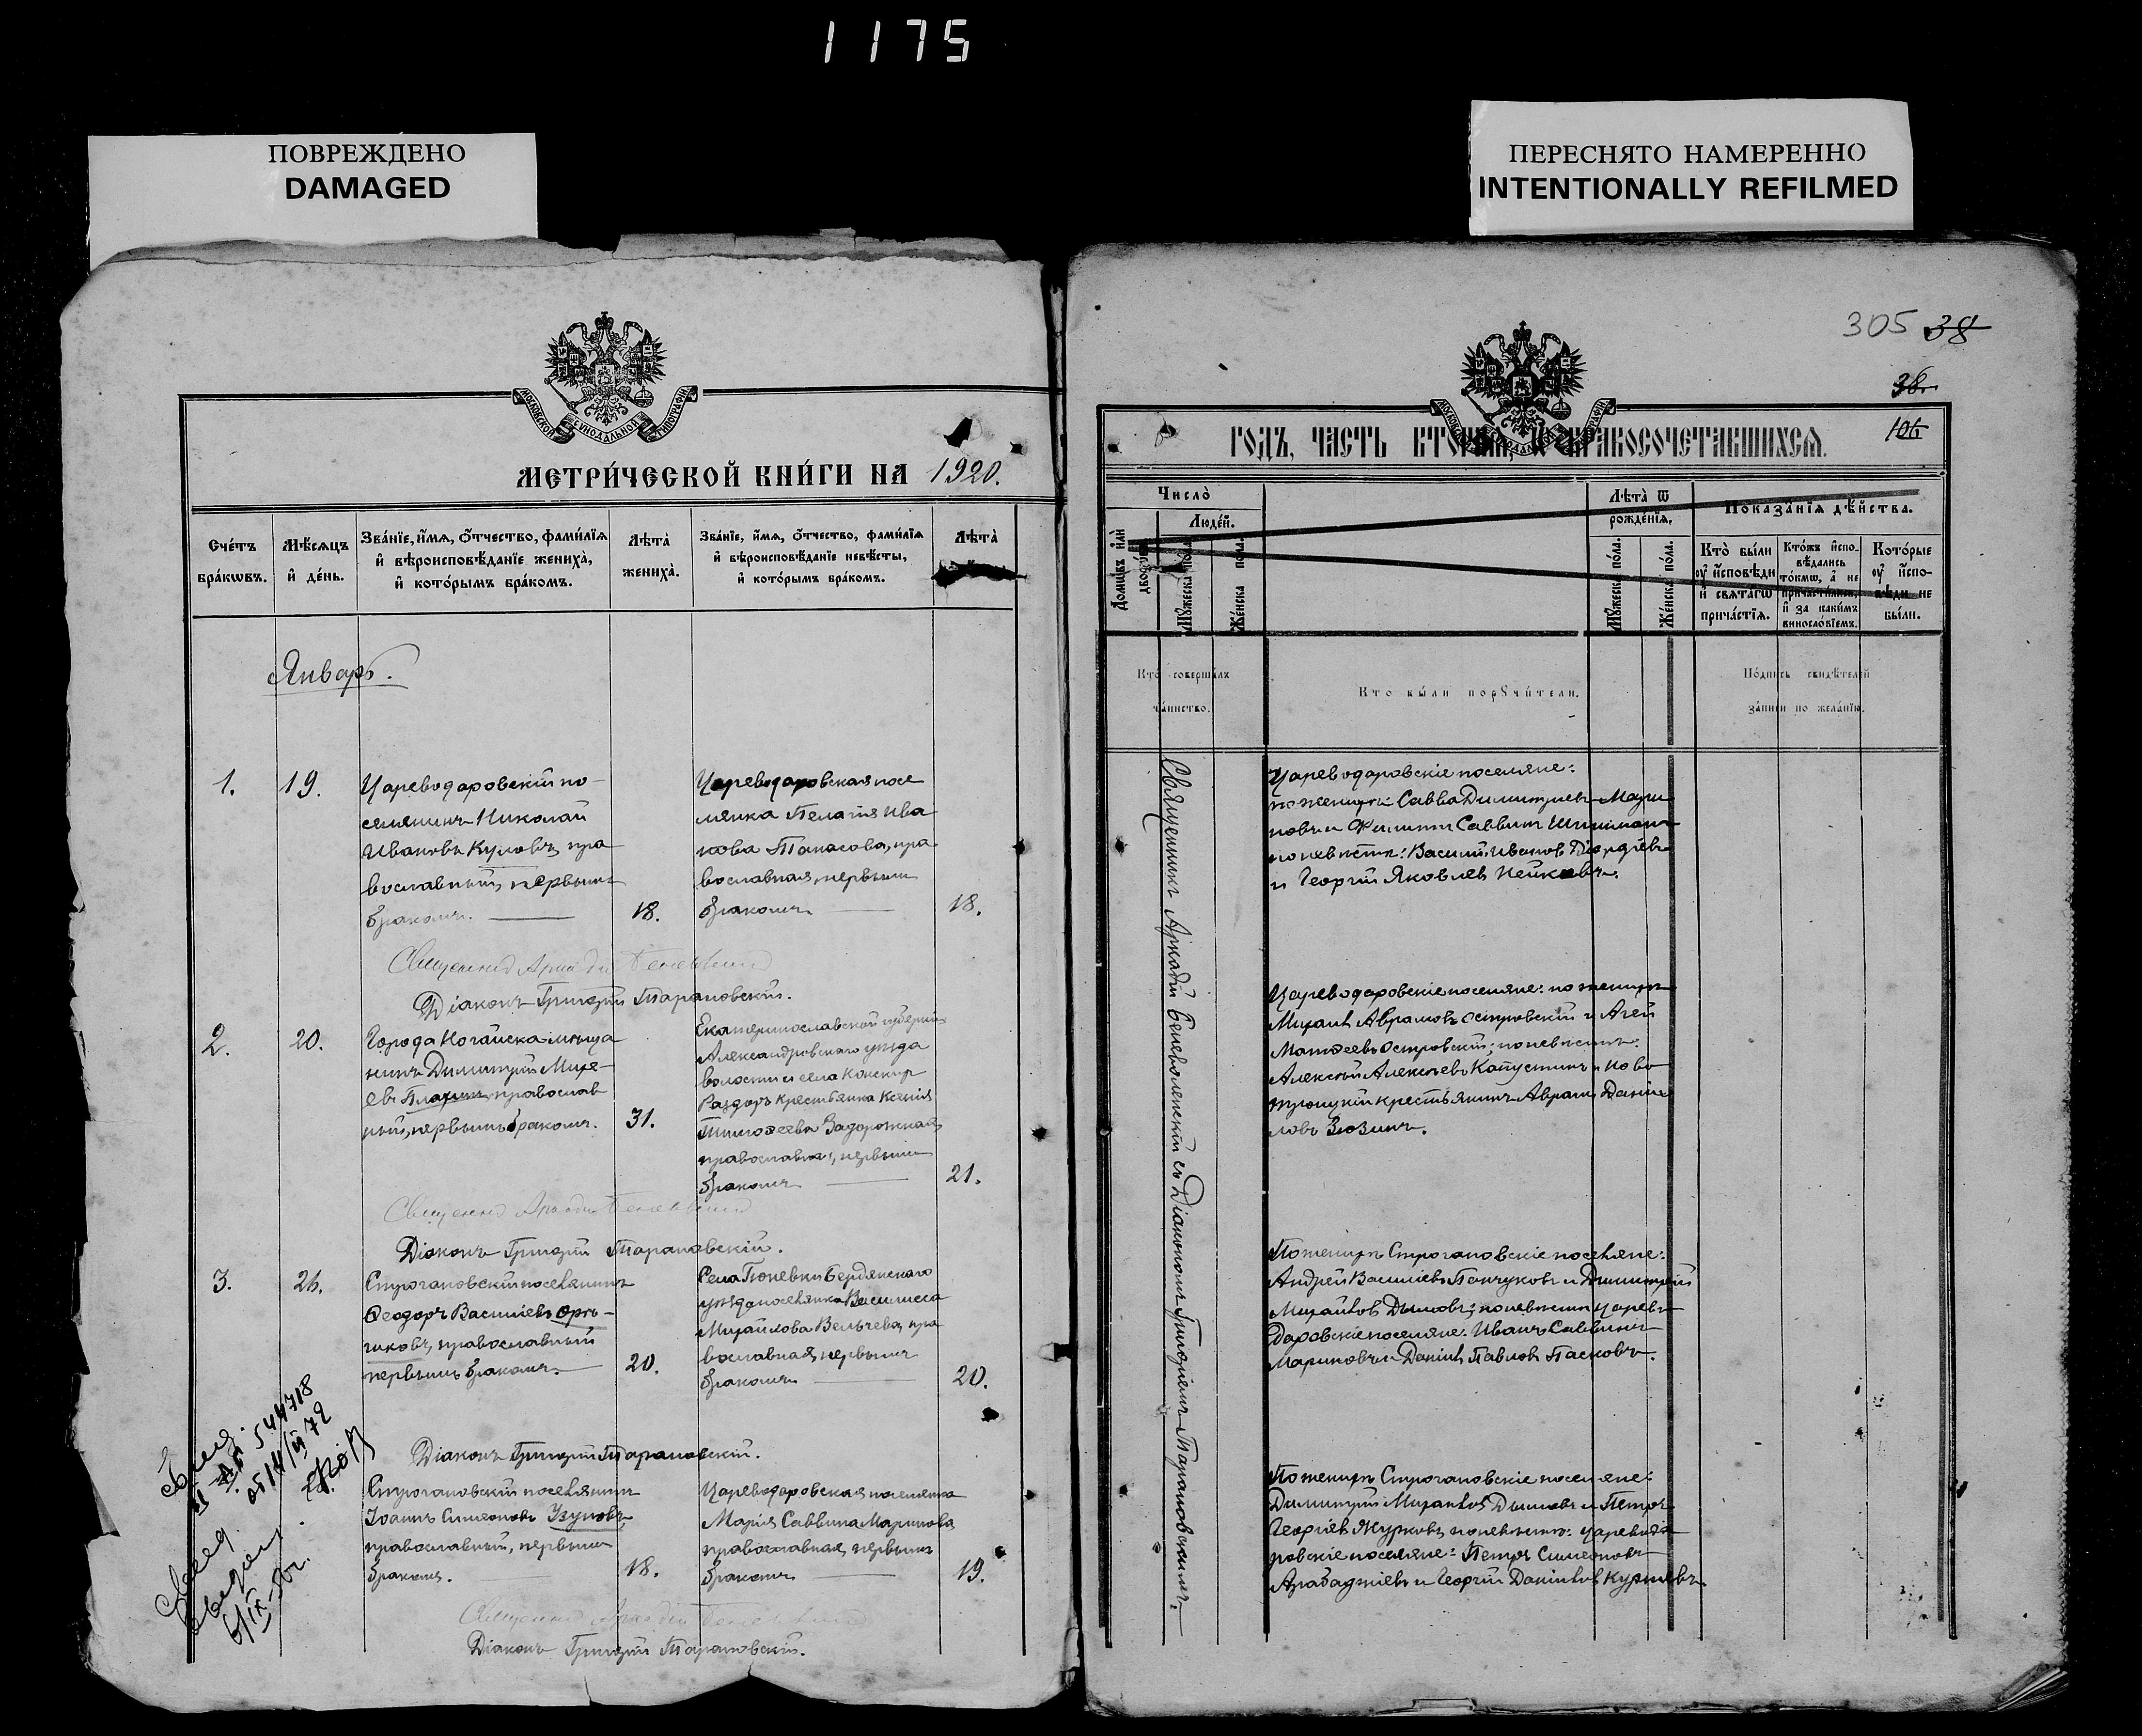 1175
ПОВРЕЖДЕНО
DAMAGED
ПЕРЕСНЯТО НАМЕРЕННО
INTENTIONALLY REFILMED
МОСКОВСКОЙ СѴНОДАЛЬНОЙ ТИПОГРАФІИ
МЕТРИ́ЧЕСКОЙ КНИ́ГИ НА 1920.
Сче́тъ
бра́кѡвъ.
Мѣ́сяцъ
и҆ де́нь.
Зва́нїе, и҆́мѧ, ѻ҆́тчество, фами́лїѧ
и҆ вѣроисповѣ́данїе жениха̀,
и҆ кото́рымъ бра́комъ.
Лѣ́та̀
жениха̀.
Зва́нїе, и҆́мѧ, ѻ҆́тчество, фами́лїѧ
и҆ вѣроисповѣ́данїе невѣ́сты,
и҆ кото́рымъ бра́комъ.
Лѣ́та̀
Январь.
1.
19.
Цареводаровскій по-
селянинъ Николай
Ивановъ Куловъ, пра
вославный, первымъ
бракомъ.
18.
Цареводаровская посе
лянка Пелагія Ива
нова Танасова, пра
вославная, первымъ
бракомъ
18.
Діаконъ Григорій Тарановскій.
2.
20.
Города Ногайска мѣща
нинъ Димитрій Михе-
евъ православ
ный, первымъ бракомъ.
31.
Екатеринославской губерніи
Александровскаго уѣзда
волости и села Конскир
Раздоръ крестьянка Ксенія
Тимоѳеева Задорожная
православная, первымъ
бракомъ
21.
Діаконъ Григорій Тарановскій.
3.
26.
Строгановскій поселянинъ
Ѳеодоръ Василіевъ
православный
первымъ бракомъ.
20.
Села Гюневки Бердянскаго
уѣзда поселянка Василиса
Михайлова Вельчева, пра
вославная, первымъ
бракомъ
20.
Діаконъ Григорій Тарановскій.
544718
Строгановскій поселянинъ
Іоаннъ Симеоновъ Узуновъ
православный, первымъ
бракомъ.
18.
Цареводаровская поселянка
Марія Саввина Маринова
православная, первымъ
бракомъ
19.
Діаконъ Григорій Тарановскій.
305 38
38
106
МОСКОВСКОЙ ТИПОГРАФІИ
ГОДЪ, ЧАСТЬ ВТОРАѦ, БРАКОСОЧЕТАВШИХСѦ.
Число̀
Люде́й.
Домѡ́въ и҆лѝ
дворѡ́въ
Мꙋ́жеска по́ла.
Же́нска по́ла.
Лѣ́та̀ ѿ
рожде́нїѧ.
Мꙋ́жеска по́ла.
Же́нска по́ла.
Показа́нїѧ дѣ́йства.
Кто̀ бы́ли
оу҆ и҆́споведи
и҆ свѧта́гѡ
прича́стїѧ.
Кто́жъ и҆спо-
вѣ́дались
то́кмѡ, а҆ не
причасти́лись,
и҆ за каки́мъ
винословїемъ.
Кото́рые
оу҆ и҆спо-
вѣди не
бы́ли.
Кто̀ соверша́лъ
та́инство.
Кто бы́ли порꙋчи́тели.
По́дпись свидѣ́телей
за́писи по жела́нїю.
Священникъ Аркадій Беневоленскій съ Діакономъ Григоріемъ Тарановскимъ.
Цареводаровскіе поселяне:
по женихѣ: Савва Димитріевъ Мари
новъ и Филиппъ Саввинъ Шишманъ
по невѣстѣ: Василій Ивановъ Діордіевъ
и Георгій Яковлевъ Пейковъ.
Цареводаровскіе поселяне: по женихѣ
Михаилъ Аврамовъ Островскій и Агей
Матѳеевъ Островскій; по невѣстѣ:
Алексѣй Алексѣевъ Капустинъ и Ново
троицкій крестьянинъ Аврамъ Данiи
ловъ Зюзинъ.
По женихѣ Строгановскіе поселяне:
Андрей Василіевъ Панчуковъ и Димитрій
Михайловъ Дымовъ; по невѣстѣ царево
даровскіе поселяне: Иванъ Саввинъ
Мариновъ и Даніилъ Павловъ Пасковъ.
По женихѣ Строгановскіе поселяне:
Димитрій Михайловъ Дымовъ и Петръ
Георгіевъ Журковъ, по невѣстѣ: цареводa
ровскіе поселяне: Петръ Симеоновъ
Арабаджіевъ и Георгій Даніиловъ Куртевъ.